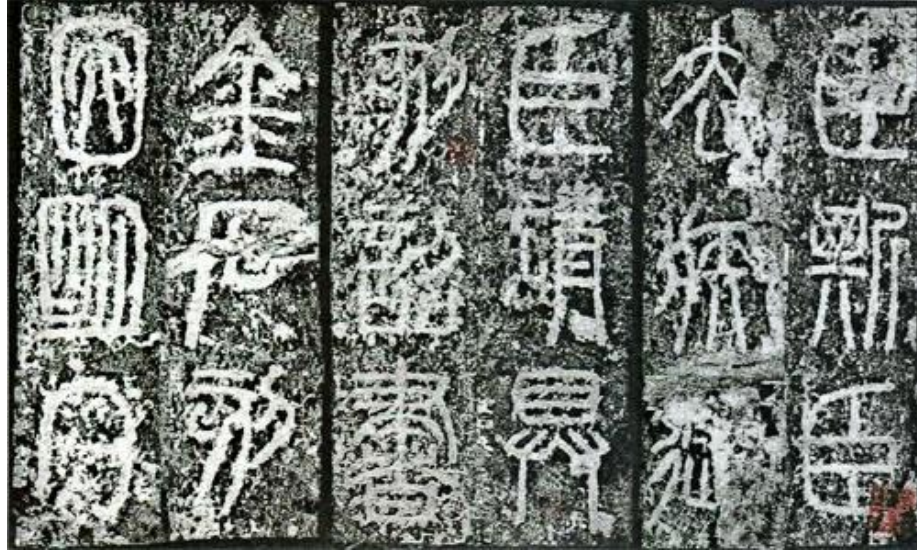 臣斯臣
去疾御
臣請具
刻詔書
金石刻
因明白